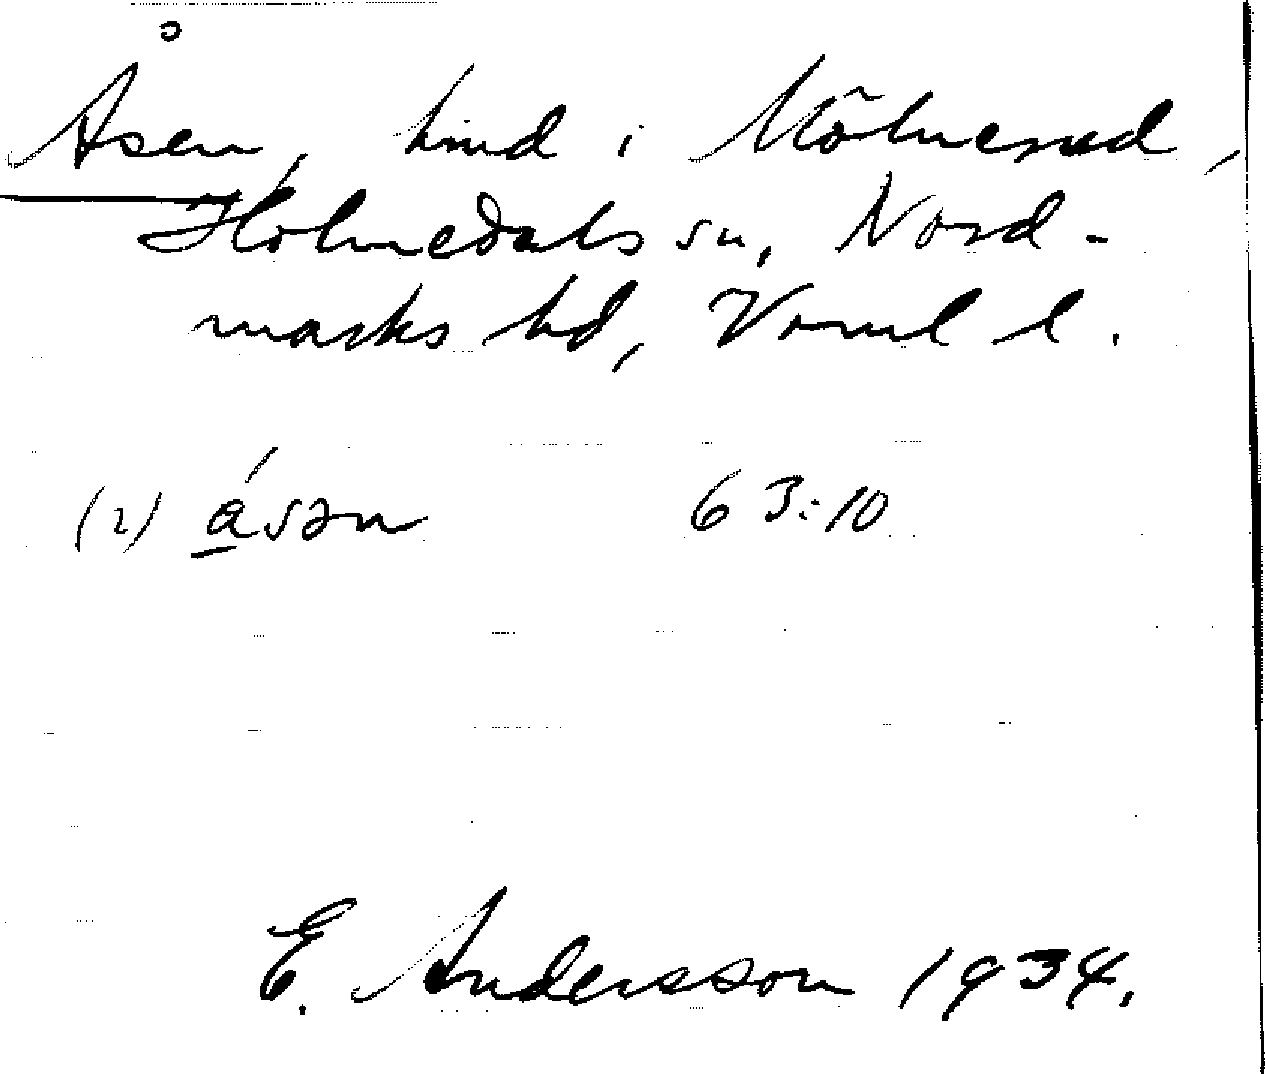 Åsen, hmd i Mölnerud,
Holmedals sn, Nord-
marks hd, Värml l.
(2) á̲sən 63:10
E. Andersson 1934.